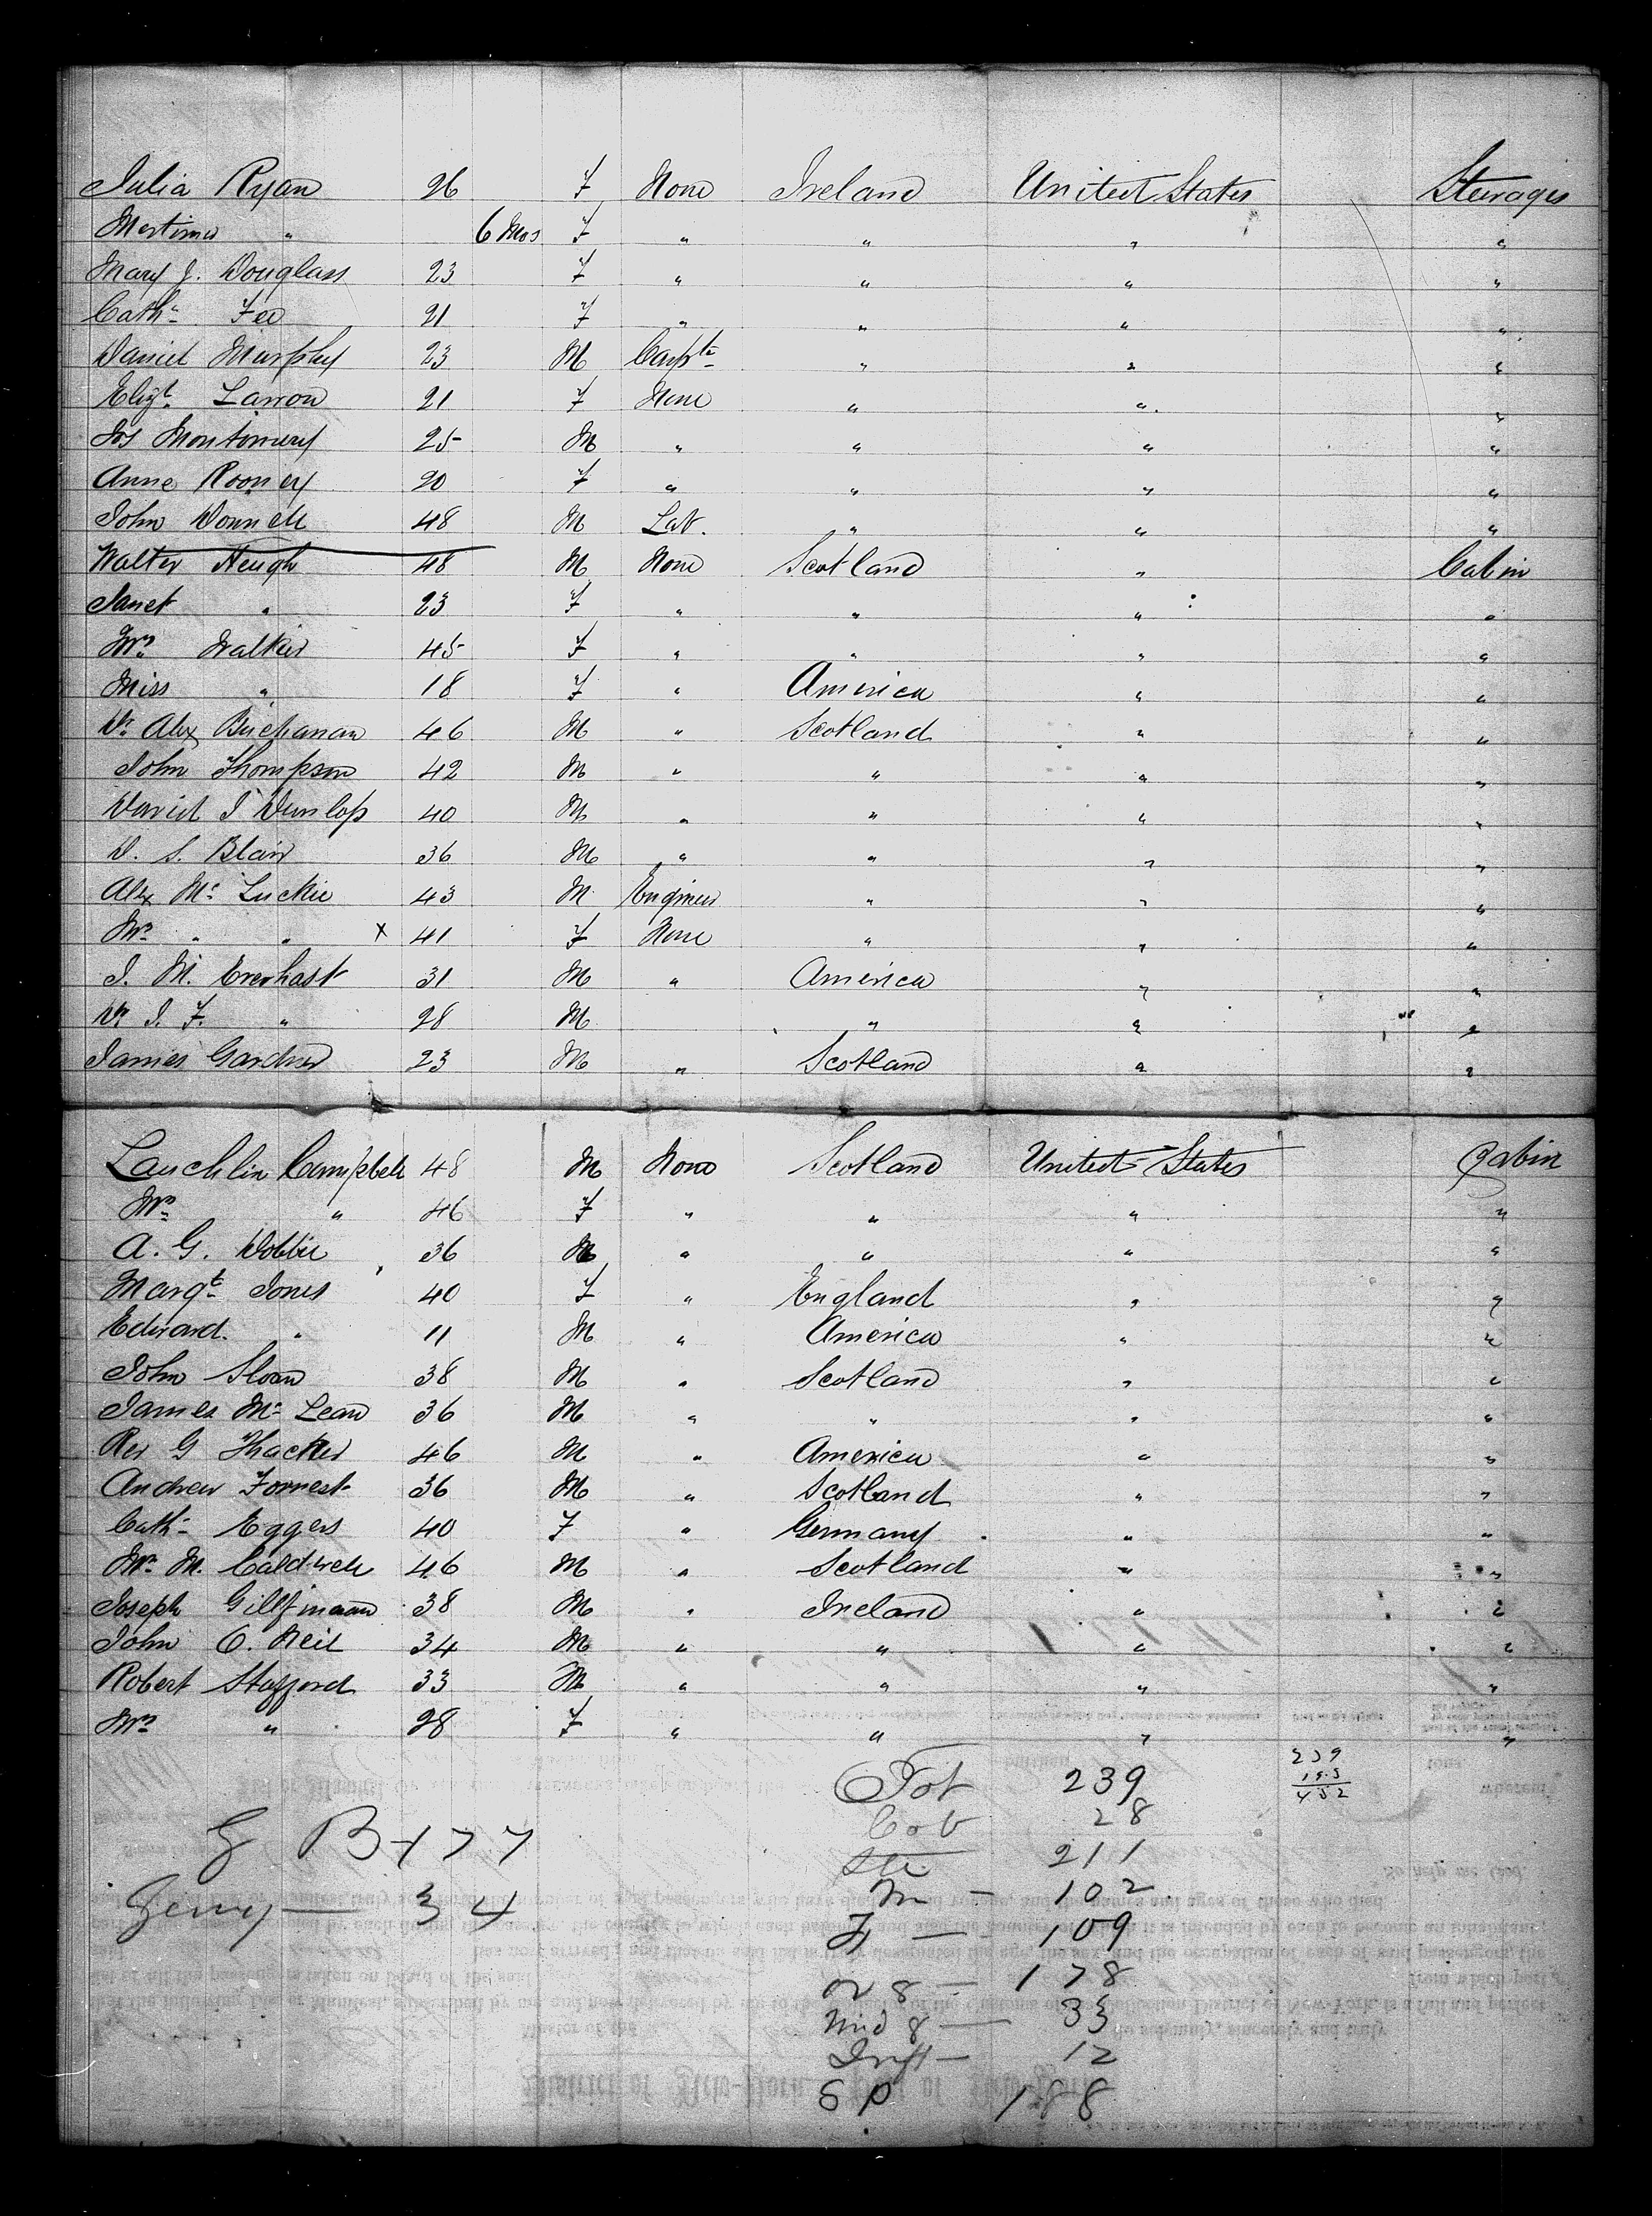 Julia Ryan 26 F None Ireland United States Steerages
Mortimer " 6 Mos F " " " "
Mary J. Douglass 23 F " " " "
Cath. Fee 21 F " " " "
Daniel Murphy 23 M Carptr " " "
Elizt. Larron 21 F None " " "
Jos Montimery 25 M " " " "
Anne Rooney 20 F " " " "
John Donnell 48 M Lab. " " "
Walter Heugh 48 M None Scotland " Cabin
Janet " 23 F " " " "
Mrs Walker 45 F " " " "
Miss " 18 F " America " "
Dr Alex Buchanan 46 M " Scotland " "
John Thompson 42 M " " " "
David J Dunlop 40 M " " " "
D. S. Blair 36 M " " " "
Alex Mc Luckie 43 M Engineer " " "
Mrs " " x 41 F None " " "
I. M. Everhart 31 M " America " "
Dr I. F. " 28 M " " "
James Gardner 23 M " Scotland " "
Lauchlin Campbell 48 M None Scotland United States Cabin
Mrs " 46 F " " " "
A. G. Dobbie 36 M " " " "
Margt Jones 40 F " England " "
Edward " 11 M " America " "
John Sloan 38 M " Scotland " "
James Mc Lean 36 M " " " "
Rev G Thacker 46 M " America " "
Andrew Forrest 36 M " Scotland " "
Cath. Eggers 40 F " Germany " "
Wm. M. Caldwell 46 M " Scotland " "
Joseph 38 M " Ireland " "
John O. Neil 34 M " " " "
Robert Stafford 33 M " " " "
Mrs " 28 F " " " "
Tot 239
Cab 28
Ste 211
M - 102
F - 109
ov 8 - 178
Und 8 - 33
Inft - 12
S P 188
G B 177
Germy - 34